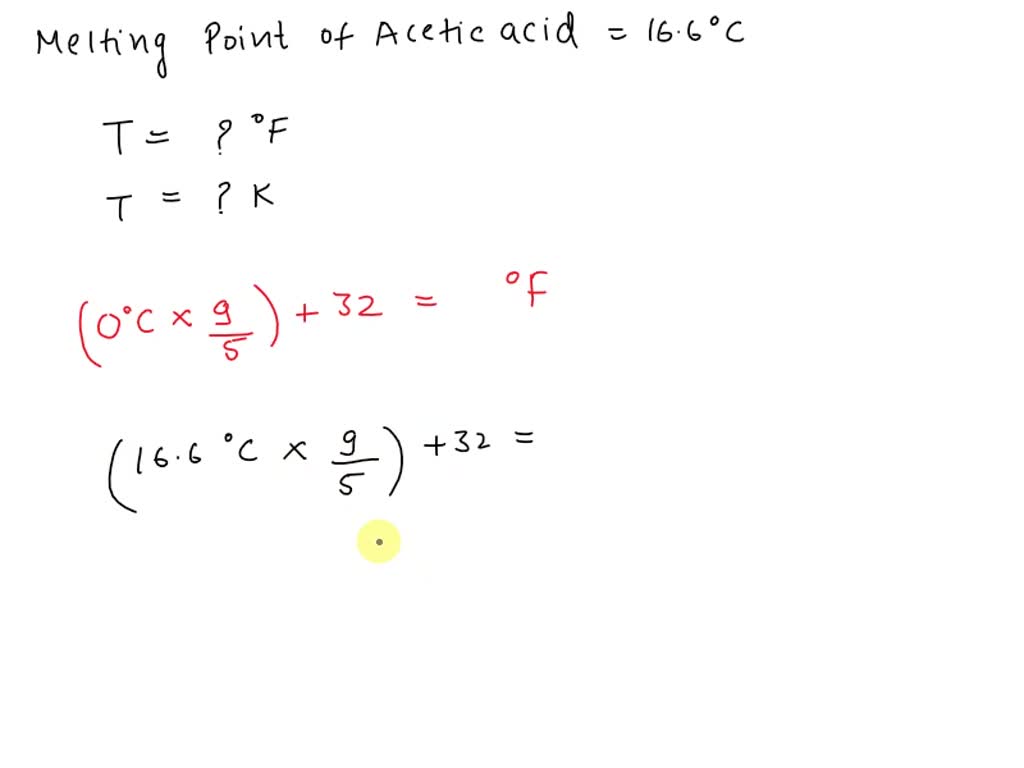 Melting Point of Acetic acid = 16.6°C
T = ? °F
T = ? K
(0°C × 9/5) + 32 = °F
(16.6 °C × 9/5) + 32 =